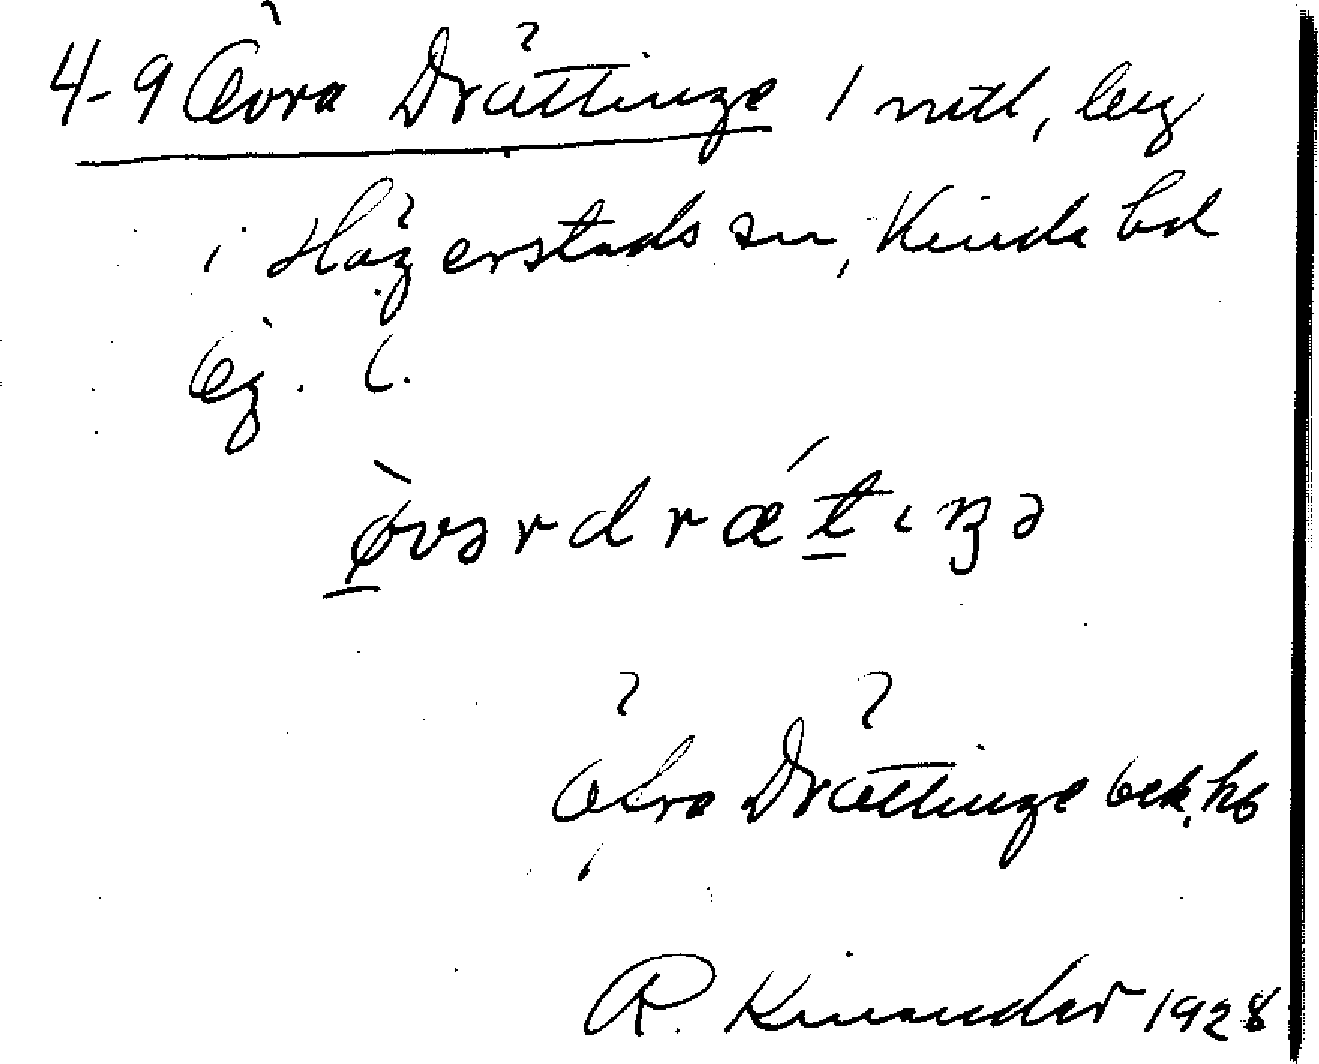 4-9 Övra Drättinge 1 mtl, leg
i Hägerstads sn, Kinda hd
Ög. l.
ǿ̀vərdrǽt̲ıŋə
Öfra Drättinge bek. hb
R. Kinander 1928